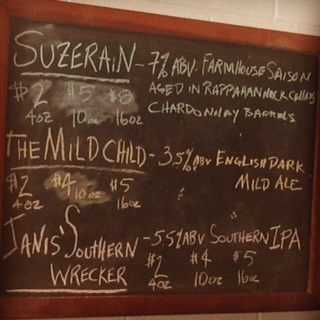 SUZERAIN - 7% ABV. FARMHOUSE SAISON
$2 $5 $8 AGED IN RAPPAHANNOCK CELLARS
4oz 10oz 16oz CHARDONNAY BARRELS
THE MILD CHILD - 3.5% ABV ENGLISH DARK
$2 $4 $5 MILD ALE
4oz 10oz 16oz
JANIS' SOUTHERN - 5.5% ABV SOUTHERN IPA
WRECKER $2 $4 $5
4oz 10oz 16oz